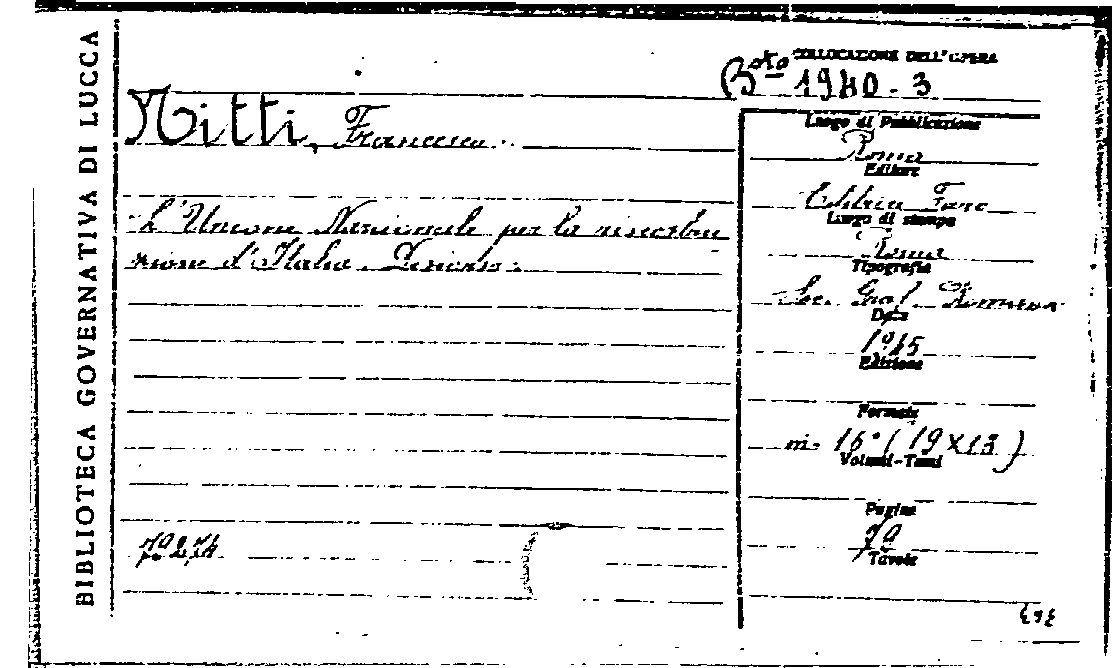 BIBLIOTECA GOVERNATIVA DI LUCCA
COLLOCAZIONE DELL'OPERA
B.ta 1940 - 3
Nitti, Francesco.
L'Unione Nazionale per la ricostru
zione d'Italia. Discorso.
Luogo di Pubblicazione
Roma
Editore
Faro
Luogo di stampa
Roma
Tipografia
Soc. Graf. Romana
Data
1945
Edizione
Formato
in- 16° (19 X 13)
Volumi-Tomi
Pagine
79
Tavole